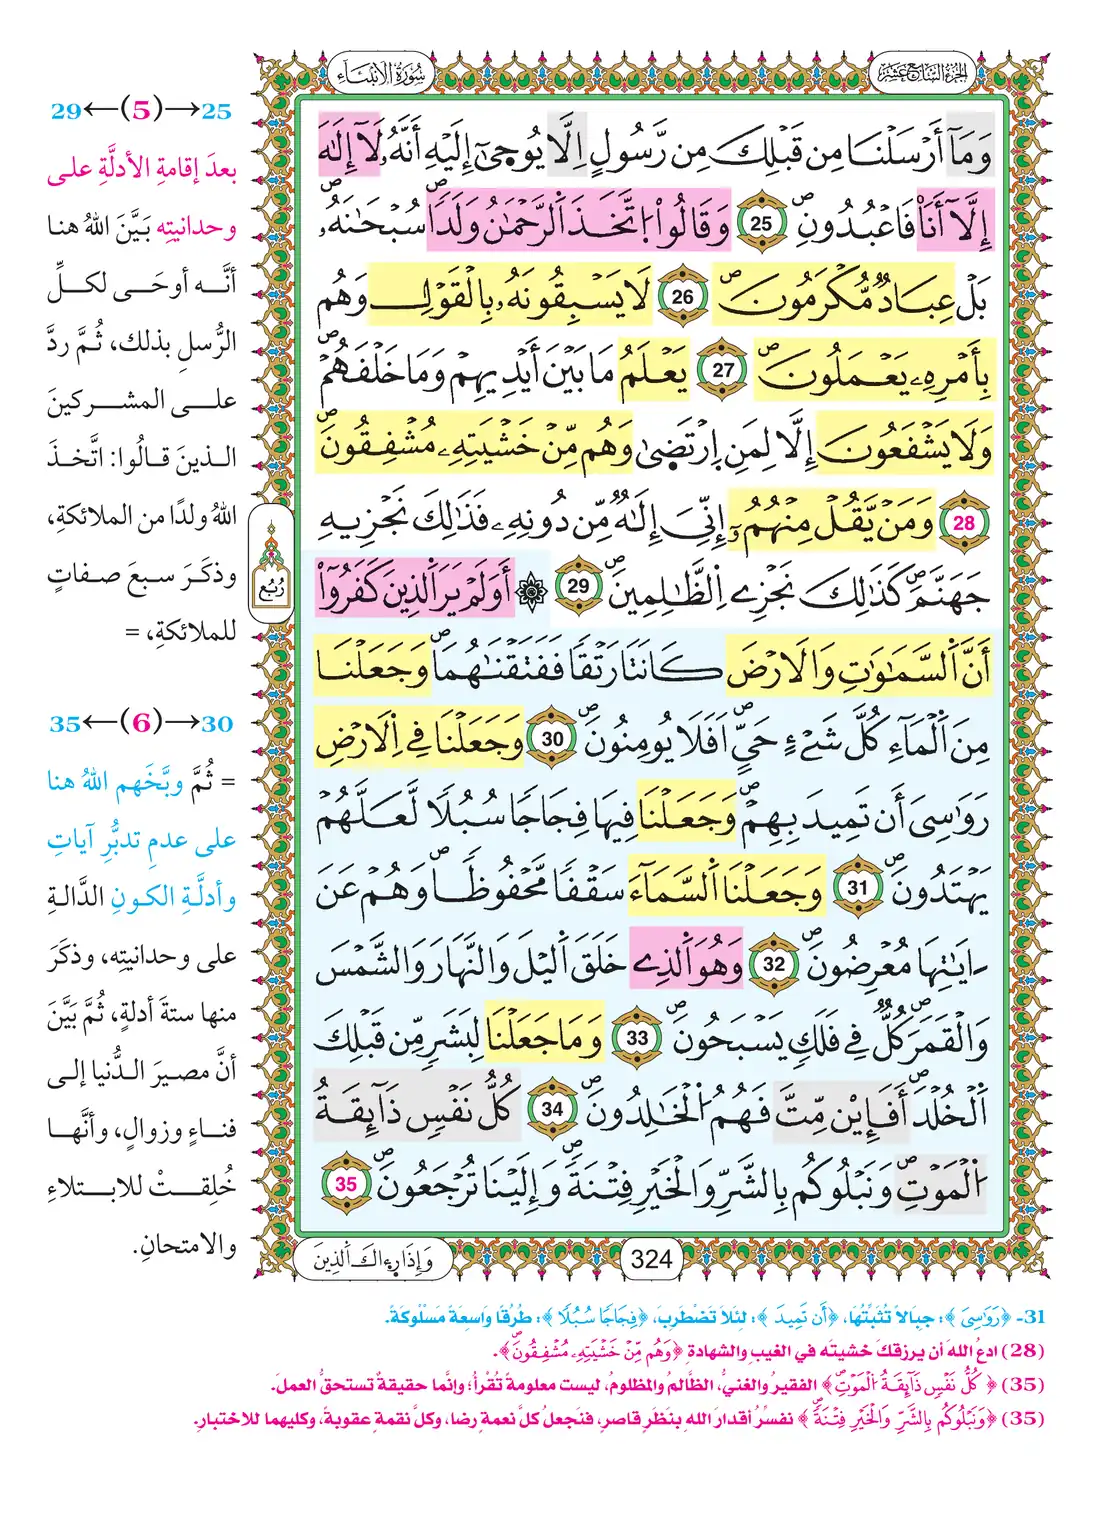 سُورَةُ الْأَنْبِيَاءِ
الجُزْءُ السَّابِعَ عَشَرَ
وَمَآ أَرْسَلْنَا مِن قَبْلِكَ مِن رَّسُولٍ اِلَّا يُوحَىٰٓ إِلَيْهِ أَنَّهُۥ لَآ إِلَٰهَ
إِلَّآ أَنَا۠ فَاعْبُدُونِ 25 وَقَالُوا۟ اُ۪تَّخَذَ اَ۬لرَّحْمَٰنُ وَلَدًا سُبْحَٰنَهُۥ
بَلْ عِبَادٌ مُّكْرَمُونَ 26 لَا يَسْبِقُونَهُۥ بِالْقَوْلِ وَهُم
بِأَمْرِهِۦ يَعْمَلُونَ 27 يَعْلَمُ مَا بَيْنَ أَيْدِيهِمْ وَمَا خَلْفَهُمْ
وَلَا يَشْفَعُونَ إِلَّا لِمَنِ اِ۪رْتَضَىٰ وَهُم مِّنْ خَشْيَتِهِۦ مُشْفِقُونَ
28 وَمَنْ يَّقُلْ مِنْهُمُۥٓ إِنِّيَ إِلَٰهٌ مِّن دُونِهِۦ فَذَٰلِكَ نَجْزِيهِ
جَهَنَّمَ كَذَٰلِكَ نَجْزِے اِ۬لظَّٰلِمِينَ 29 ۞ أَوَلَمْ يَرَ اَ۬لذِينَ كَفَرُوٓا۟
أَنَّ اَ۬لسَّمَٰوَٰتِ وَالَارْضَ كَانَتَا رَتْقًا فَفَتَقْنَٰهُمَا وَجَعَلْنَا
مِنَ اَ۬لْمَآءِ كُلَّ شَےْءٍ حَيٍّ اَفَلَا يُومِنُونَ 30 وَجَعَلْنَا فِے اِ۬لَارْضِ
رَوَٰسِيَ أَن تَمِيدَ بِهِمْ وَجَعَلْنَا فِيهَا فِجَاجًا سُبُلًا لَّعَلَّهُمْ
يَهْتَدُونَ 31 وَجَعَلْنَا اَ۬لسَّمَآءَ سَقْفًا مَّحْفُوظًا وَهُمْ عَنَ
ـايَٰتِهَا مُعْرِضُونَ 32 وَهُوَ اَ۬لذِے خَلَقَ اَ۬ليْلَ وَالنَّهَارَ وَالشَّمْسَ
وَالْقَمَرَ كُلٌّ فِے فَلَكٍ يَسْبَحُونَ 33 وَمَا جَعَلْنَا لِبَشَرٍ مِّن قَبْلِكَ
اَ۬لْخُلْدَ أَفَإِيْن مِّتَّ فَهُمُ اُ۬لْخَٰلِدُونَ 34 كُلُّ نَفْسٍ ذَآئِقَةُ
اُ۬لْمَوْتِ وَنَبْلُوكُم بِالشَّرِّ وَالْخَيْرِ فِتْنَةً وَإِلَيْنَا تُرْجَعُونَ 35
رُبُع
وَإِذَا رِءاكَ اَ۬لذِينَ
324
25→(5)←29
بعدَ إقامةِ الأدلَّةِ على
وحدانيتِه بَيَّنَ اللهُ هنا
أنَّه أوحَى لكلِّ
الرُّسلِ بذلك، ثُمَّ ردَّ
على المشركينَ
الذينَ قالُوا: اتَّخذَ
اللهُ ولدًا من الملائكةِ،
وذكَرَ سبعَ صفاتٍ
للملائكةِ، =
30→(6)←35
= ثُمَّ وبَّخَهم اللهُ هنا
على عدمِ تدبُّرِ آياتِ
وأدلَّةِ الكونِ الدَّالةِ
على وحدانيتِه، وذكَرَ
منها ستةَ أدلةٍ، ثُمَّ بَيَّنَ
أنَّ مصيرَ الدُّنيا إلى
فناءٍ وزوالٍ، وأنَّها
خُلِقتْ للابتلاءِ
والامتحانِ.
31- ﴿رَوَٰسِيَ﴾: جِبَالاً تُثَبِّتُهَا، ﴿أَن تَمِيدَ﴾: لِئَلاَّ تَضْطَرِبَ، ﴿فِجَاجًا سُبُلًا﴾: طُرُقًا وَاسِعَةً مَسْلُوكَةً.
(28) ادعُ الله أن يرزقكَ خشيتَه في الغيبِ والشهادةِ ﴿وَهُم مِّنْ خَشْيَتِهِۦ مُشْفِقُونَ﴾.
(35) ﴿كُلُّ نَفْسٍ ذَآئِقَةُ اُ۬لْمَوْتِ﴾ الفقيرُ والغنيُّ، الظَّالمُ والمظلومُ، ليست معلومةً تُقْرأُ؛ وإنَّما حقيقةٌ تستحقُّ العملَ.
(35) ﴿وَنَبْلُوكُم بِالشَّرِّ وَالْخَيْرِ فِتْنَةً﴾ نفسِّرُ أقدارَ اللهِ بنَظَرٍ قاصرٍ، فنَجعلُ كلَّ نعمةٍ رضا، وكلَّ نقمةٍ عقوبةً، وكليهما للاختبارِ.